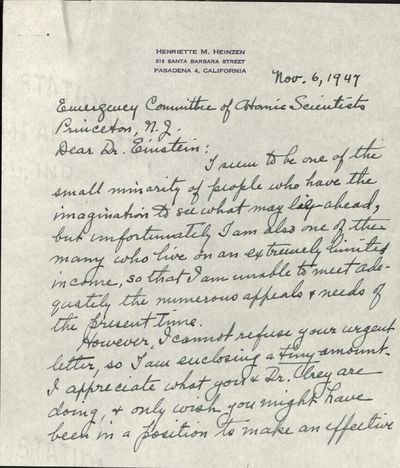 HENRIETTE M. HEINZEN
516 SANTA BARBARA STREET
PASADENA 4, CALIFORNIA
Nov. 6, 1947
Emergency Committee of Atomic Scientists
Princeton, N.J.
Dear Dr. Einstein:
I seem to be one of the
small minority of people who have the
imagination to see what may lie ahead,
but unfortunately I am also one of the
many who live on an extremely limited
income, so that I am unable to meet ade-
quately the numerous appeals & needs of
the present time.
However, I cannot refuse your urgent
letter, so I am enclosing a tiny amount.
I appreciate what you & Dr. Urey are
doing, & only wish you might have
been in a position to make an effective